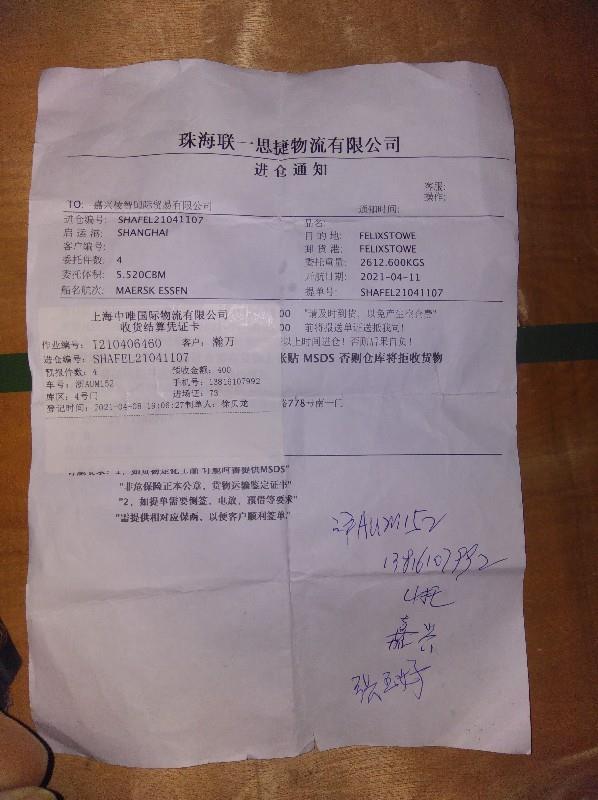 珠海联一思捷物流有限公司
进仓通知
客服:
操作:
TO: 嘉兴棱智国际贸易有限公司
通知时间:
进仓编号: SHAFEL21041107
品名:
启运港: SHANGHAI
目的地: FELIXSTOWE
客户编号:
卸货港: FELIXSTOWE
委托件数: 4
委托重量: 2612.600KGS
委托体积: 5.520CBM
开航日期: 2021-04-11
船名航次: MAERSK ESSEN
提单号: SHAFEL21041107
上海中唯国际物流有限公司
收货结算凭证卡
作业编号: Y210406460 客户: 瀚万
进仓编号: SHAFEL21041107
预报件数: 4 预收金额: 400
车号: 浙AUM152 手机号: 13816107992
库区: 4号门 进场证: 73
登记时间: 2021-04-08 19:06:27制单人: 徐贝龙
00 "请及时到货, 以免产生
00 前将报送单证送抵我司!
以上时间进仓! 否则后果自负!
张贴 MSDS 否则仓库将拒收货物
路778号南一门
1, 如货物是化工品 订舱时需提供MSDS"
"非危保险正本公章, 货物运输鉴定证书"
"2, 如提单需要倒签, 电放, 预借等要求"
"需提供相对应保函, 以便客户顺利签单"
浙AUM152
13816107992
4托
嘉兴